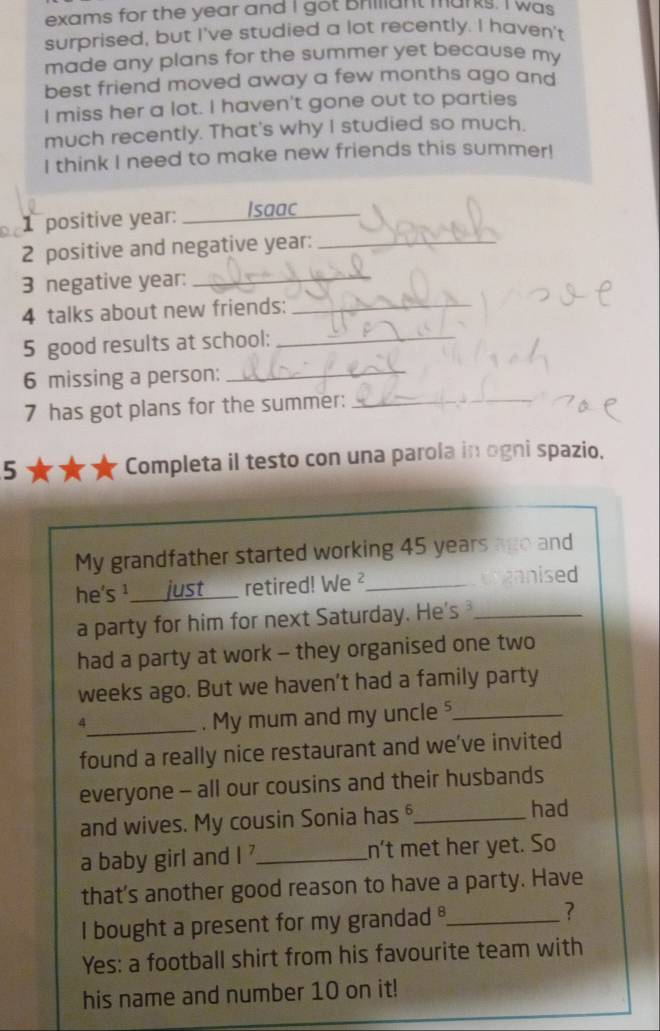 exams for the year and I got brilliant marks. I was
surprised, but I've studied a lot recently. I haven't
made any plans for the summer yet because my
best friend moved away a few months ago and
I miss her a lot. I haven't gone out to parties
much recently. That's why I studied so much.
I think I need to make new friends this summer!
1 positive year: Isaac
2 positive and negative year: Sarah
3 negative year:
4 talks about new friends:
5 good results at school:
6 missing a person:
7 has got plans for the summer:
5 ★★★ Completa il testo con una parola in ogni spazio.
My grandfather started working 45 years ago and
he's ¹ just retired! We ²________ organised
a party for him for next Saturday. He's ³________
had a party at work – they organised one two
weeks ago. But we haven't had a family party
⁴________. My mum and my uncle ⁵________
found a really nice restaurant and we've invited
everyone – all our cousins and their husbands
and wives. My cousin Sonia has ⁶________ had
a baby girl and I ⁷________n't met her yet. So
that's another good reason to have a party. Have
I bought a present for my grandad ⁸________?
Yes: a football shirt from his favourite team with
his name and number 10 on it!